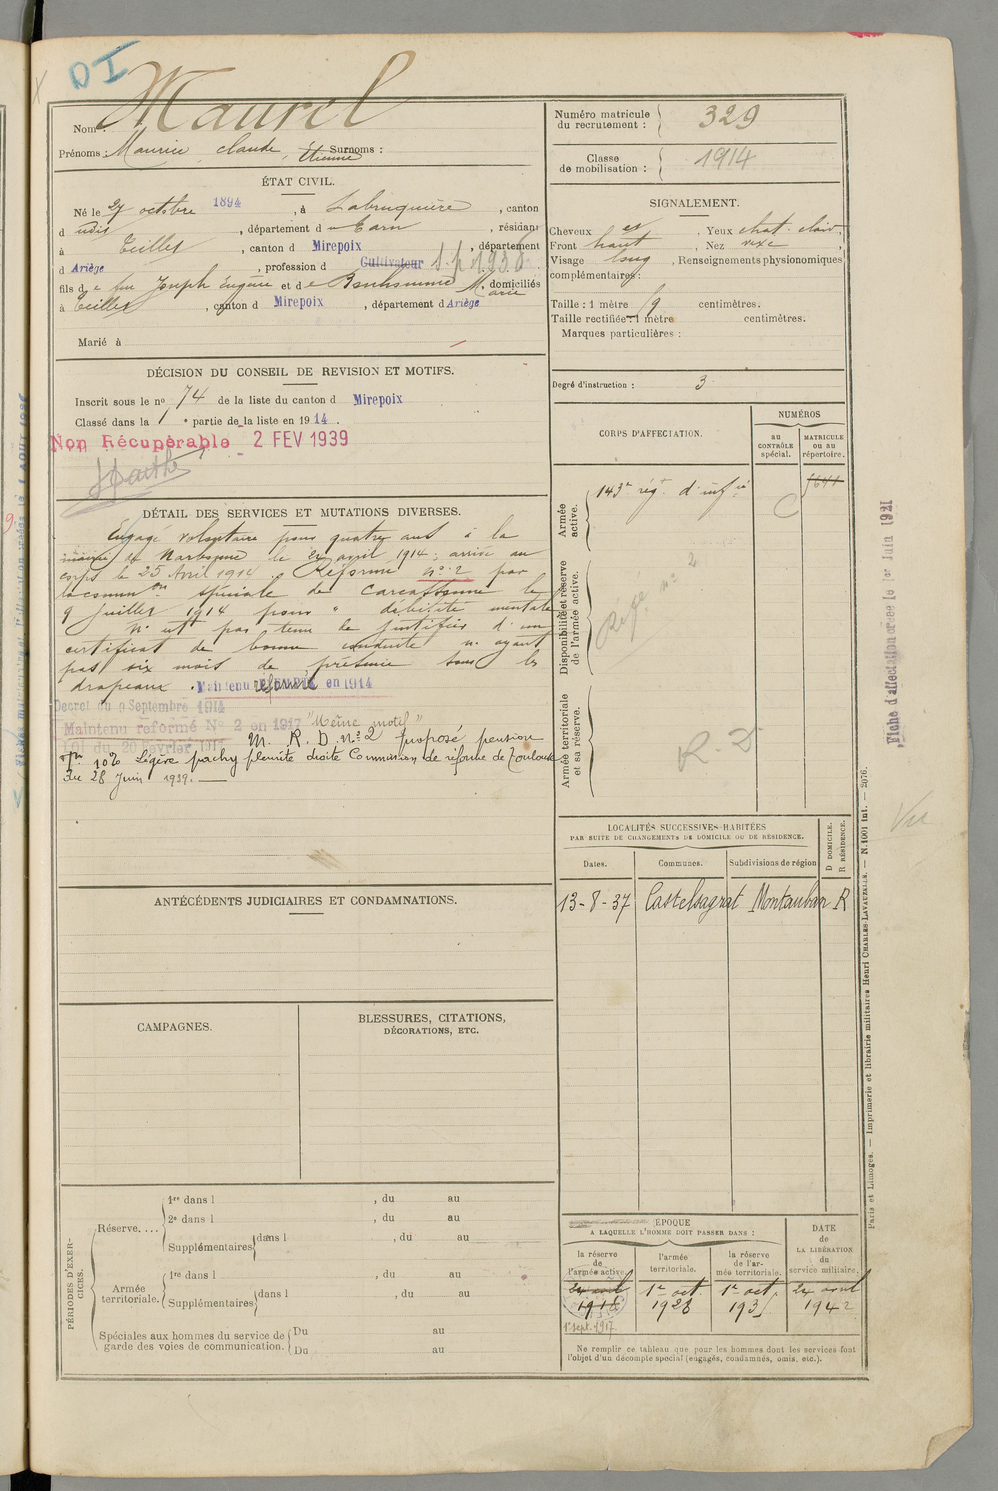 DI
Maurel
Nom :
Prénoms : Maurice, Claude, Etienne Surnoms :
Numéro matricule du recrutement : 329
Classe de mobilisation : 1914
ÉTAT CIVIL.
Né le 27 octobre 1894, à Labruguière, canton
d udit, département d u Tarn, résidant
à Teilles, canton d Mirepoix, département
d Ariège, profession d Cultivateur S.P. 1936
fils d e feu Joseph Eugène et d e Bonhomme Marie, domiciliés
à Teilles, canton d Mirepoix, département d Ariège
Marié à
SIGNALEMENT.
Cheveux , Yeux chat. clair,
Front haut, Nez vexe,
Visage long, Renseignements physionomiques
complémentaires :
Taille : 1 mètre centimètres.
Taille rectifiée : 1 mètre centimètres.
Marques particulières :
Degré d'instruction : 3
DÉCISION DU CONSEIL DE REVISION ET MOTIFS.
Inscrit sous le no 74 de la liste du canton d Mirepoix
Classé dans la 1e partie de la liste en 1914.
Non Récupérable 2 FEV 1939
DÉTAIL DES SERVICES ET MUTATIONS DIVERSES.
Engagé volontaire pour quatre ans à la
mairie de Narbonne le 24 avril 1914; arrivé au
corps le 25 Avril 1914. Réformé no 2 par
la common spéciale de Carcassonne le
9 Juillet 1914 pour "débilité mentale
N'est pas tenu de justifier d'un
certificat de bonne conduite n'ayant
pas six mois de présence sous les
drapeaux. Maintenu réformé en 1914
Decret du 9 Septembre 1914
Maintenu reformé No 2 en 1917 "Même motif"
Loi du 20 fevrier 1917 M. R. D. no 2 proposé pension
Tre 10% Légère pachy pleurite droite Commission de réforme de Toulouse
du 28 Juin 1939.
CORPS D'AFFECTATION.
NUMÉROS
au CONTRÔLE spécial.
MATRICULE ou au répertoire.
Armée active.
143e rég. d'infie
C
Disponibilité et réserve de l'armée active.
Réfé no 2
Armée territoriale et sa réserve.
R. D.
LOCALITÉS SUCCESSIVES HABITÉES
PAR SUITE DE CHANGEMENTS DE DOMICILE OU DE RÉSIDENCE.
D DOMICILE.
R RÉSIDENCE.
Dates. Communes. Subdivisions de région
13-8-37 Castelsagrat Montauban R
ANTÉCÉDENTS JUDICIAIRES ET CONDAMNATIONS.
CAMPAGNES.
BLESSURES, CITATIONS,
DÉCORATIONS, ETC.
PÉRIODES D'EXERCICES.
Réserve....
1re dans l , du au
2e dans l , du au
Supplémentaires dans l , du au
Armée territoriale.
1re dans l , du au
Supplémentaires dans l , du au
Spéciales aux hommes du service de garde des voies de communication.
Du au
Du au
ÉPOQUE
A LAQUELLE L'HOMME DOIT PASSER DANS :
DATE de LA LIBÉRATION du service militaire.
la réserve de l'armée active.
l'armée territoriale.
la réserve de l'armée territoriale.
24 avril 1918
1er sept. 1917
1er oct. 1928
1er oct. 193
24 avril 1942
Ne remplir ce tableau que pour les hommes dont les services font
l'objet d'un décompte spécial (engagés, condamnés, omis, etc.).
Fiche d'affectation créée le 1er Juin 1921
Vu
Paris et Limoges. — Imprimerie et librairie militaires Henri CHARLES-LAVAUZELLE. — N. 1001 int. — 2076.